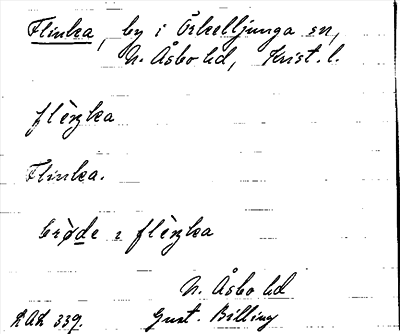 Flinka, by i Örkelljunga sn,
N. Åsbo hd, Krist. l.
flèŋka
Flinka.
brøde i flèŋka
N. Åsbo hd
LAL 339. Gust. Billing